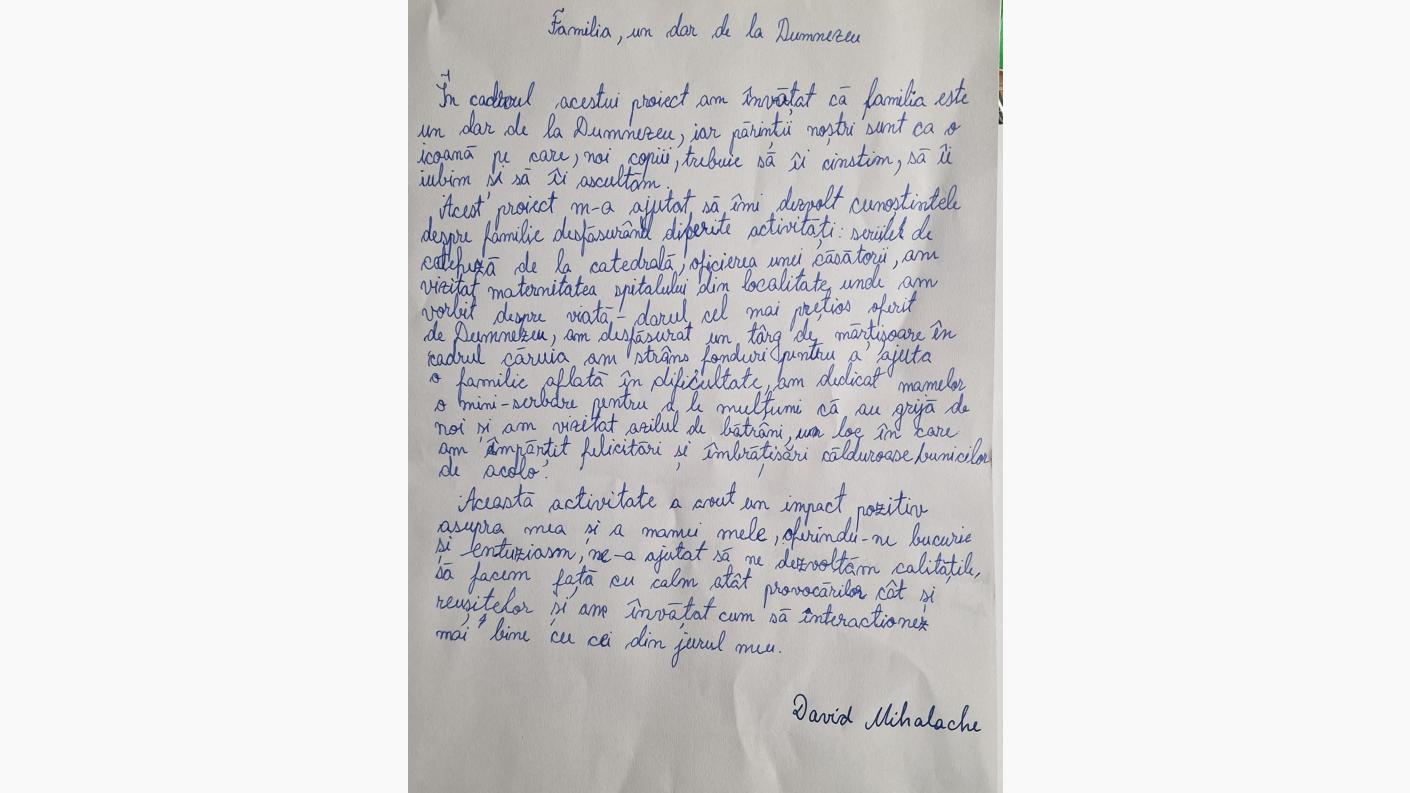 Familia, un dar de la Dumnezeu
În cadrul acestui proiect am învățat că familia este
un dar de la Dumnezeu, iar părinții noștri sunt ca o
icoană pe care, noi copiii, trebuie să îi cinstim, să îi
iubim și să îi ascultăm.
Acest proiect m-a ajutat să îmi dezvolt cunoștințele
despre familie desfășurând diferite activități: serile de
cateheză de la catedrală, oficierea unei căsătorii, am
vizitat maternitatea spitalului din localitate unde am
vorbit despre viață - darul cel mai prețios oferit
de Dumnezeu, am desfășurat un târg de mărțișoare în
cadrul căruia am strâns fonduri pentru a ajuta
o familie aflată în dificultate, am dedicat mamelor
o mini-serbare pentru a le mulțumi că au grijă de
noi și am vizitat azilul de bătrâni, un loc în care
am împărțit felicitări și îmbrățișări călduroase bunicilor
de acolo.
Această activitate a avut un impact pozitiv
asupra mea și a mamei mele, oferindu-ne bucurie
și entuziasm, ne-a ajutat să ne dezvoltăm calitățile,
să facem față cu calm atât provocărilor cât și
reușitelor și am învățat cum să interacționez
mai bine cu cei din jurul meu.
David Mihalache